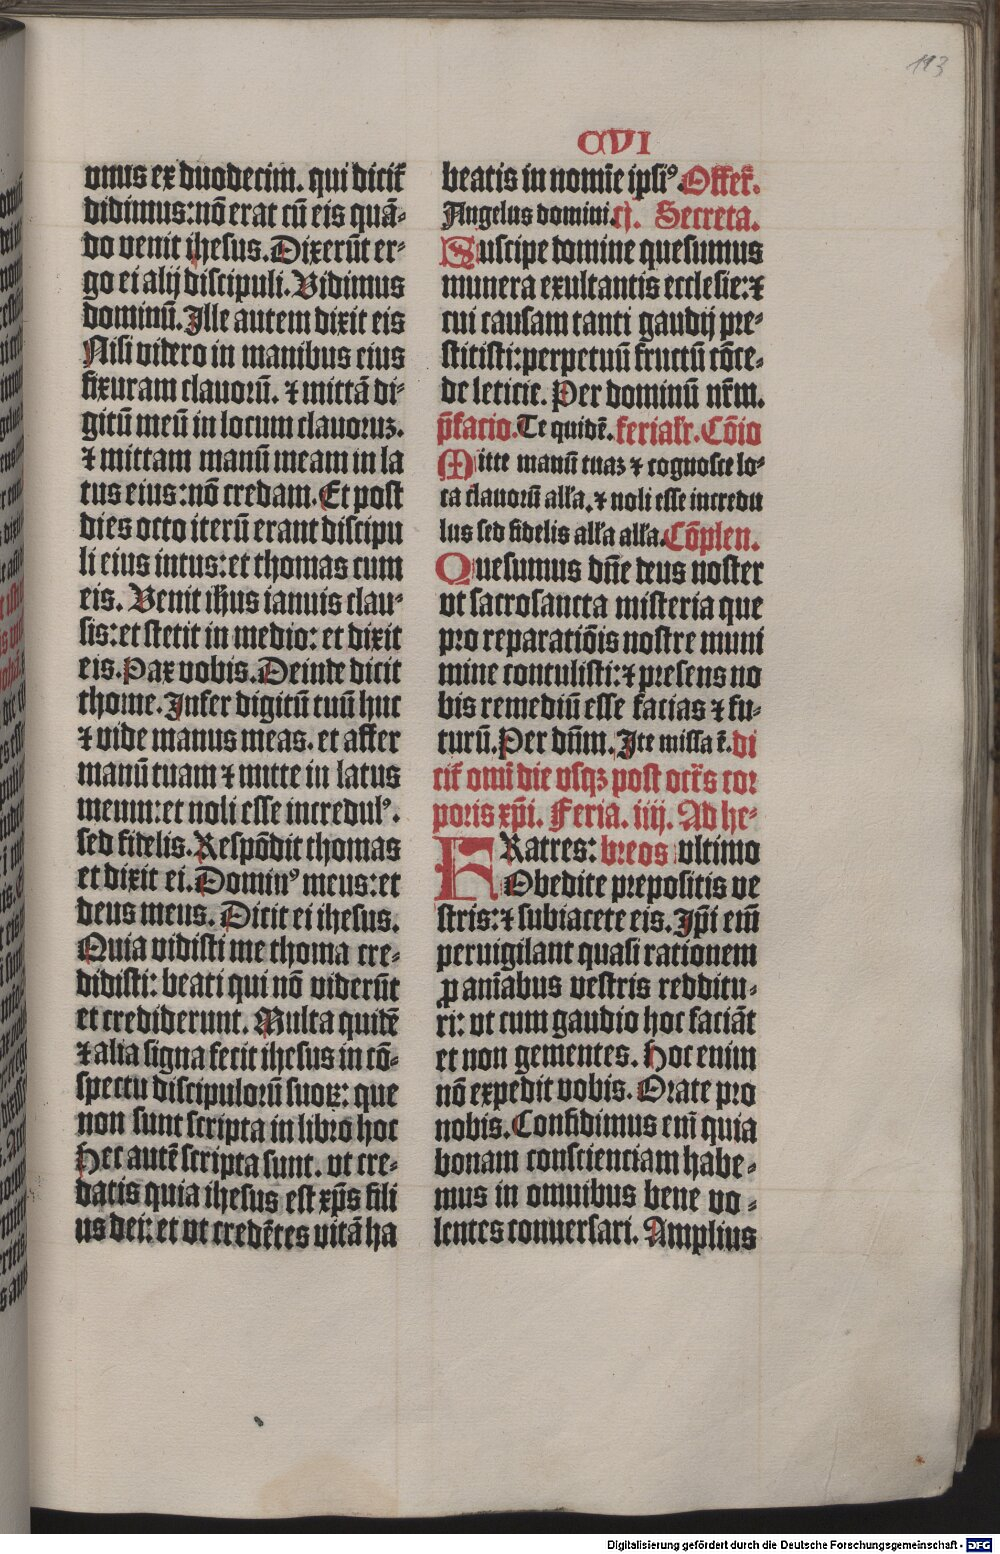 113
CVI
vnus ex duodecim. qui dicit̃
didimus: nō erat cū eis quā-
do venit ihesus. Dixerūt er-
go ei alij discipuli. Vidimus
dominū. Ille autem dixit eis
Nisi videro in manibus eius
fixuram clauorū. ⁊ mittā di-
gitū meū in locum clauoruꝫ.
⁊ mittam manū meam in la
tus eius: nō credam. Et post
dies octo iterū erant discipu
li eius intus: et thomas cum
eis. Venit ihūs ianuis clau-
sis: et stetit in medio: et dixit
eis. Pax vobis. Deinde dicit
thome. Infer digitū tuū huc
⁊ vide manus meas. et affer
manū tuam ⁊ mitte in latus
meum: et noli esse incredulꝰ.
sed fidelis. Respōdit thomas
et dixit ei. Dominꝰ meus: et
deus meus. Dicit ei ihesus.
Quia vidisti me thoma cre-
didisti: beati qui nō viderūt
et crediderunt. Multa quidē
⁊ alia signa fecit ihesus in cō-
spectu discipulorū suoꝝ: que
non sunt scripta in libro hoc
Hec autē scripta sunt. vt cre-
datis quia ihesus est xp̄s fili
us dei: et vt credētes vitā ha
beatis in nomīe ipsiꝰ. Offer̃.
Angelus domini. cj. Secreta.
Suscipe domine quesumus
munera exultantis ecclesie: ⁊
cui causam tanti gaudij pre-
stitisti: perpetuū fructū cōce-
de leticie. Per dominū nr̃m.
p̄facio. Te quidē. ferialr̃. Cōio
Mitte manū tuaꝫ ⁊ cognosce lo-
ca clauorū all'a. ⁊ noli esse incredu
lus sed fidelis all'a all'a. Cōplen.
Quesumus dn̄e deus noster
vt sacrosancta misteria que
pro reparatiōis nostre muni
mine contulisti: ⁊ presens no
bis remediū esse facias ⁊ fu-
turū. Per dn̄m. Ite missa ē. di
cit̃ omī die vsqꝫ post oct̃s cor
poris xp̄i. Feria. iiij. Ad he-
FRatres: breos vltimo
Obedite prepositis ve
stris: ⁊ subiacete eis. Ip̄i em̄
peruigilant quasi rationem
ꝓ anīabus vestris redditu-
ri: vt cum gaudio hoc faciāt
et non gementes. Hoc enim
nō expedit vobis. Orate pro
nobis. Confidimus enī quia
bonam conscienciam habe-
mus in omnibus bene vo-
lentes conuersari. Amplius
Digitalisierung gefördert durch die Deutsche Forschungsgemeinschaft - DFG